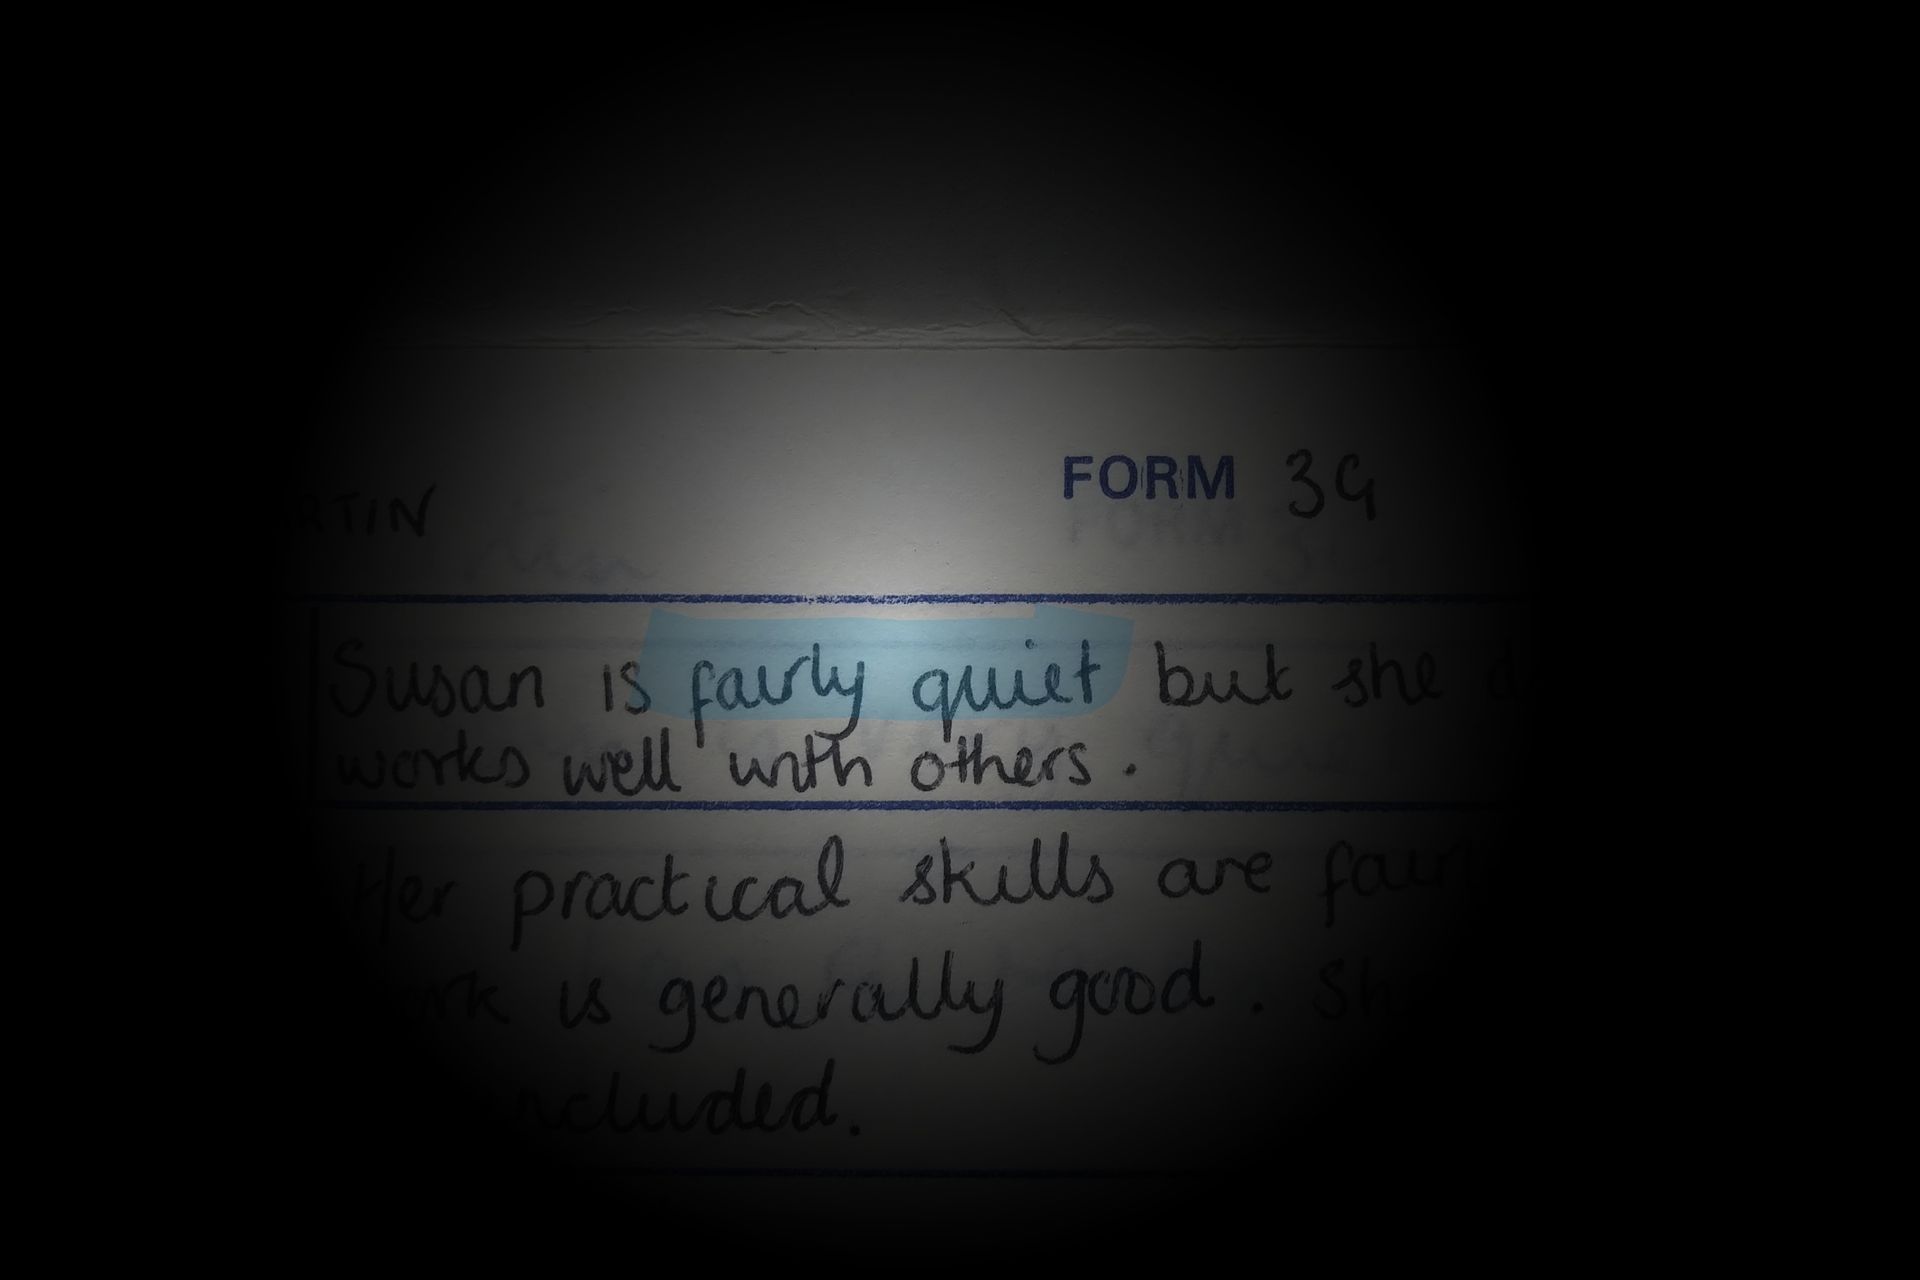 FORM 3G
Susan is fairly quiet but she
works well with others.
Her practical skills are
work is generally good. She
included.